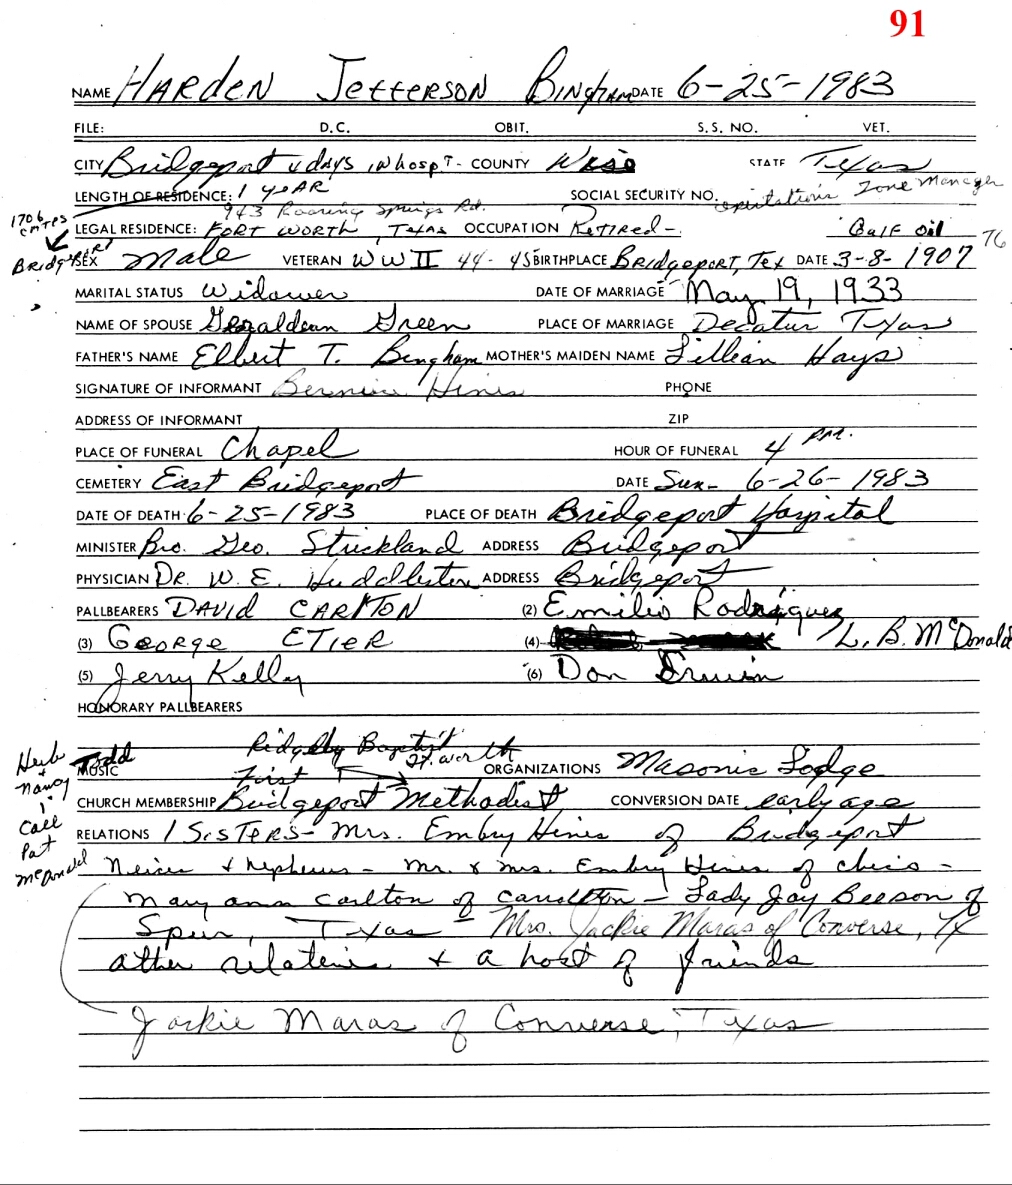 91
NAME HARDEN JEFFERSON BINGHAM DATE 6-25-1983
FILE: D.C. OBIT. S.S. NO. VET.
CITY Bridgeport 4 days in hospt- COUNTY Wise STATE Texas
LENGTH OF RESIDENCE: 1 yeAR SOCIAL SECURITY NO. Zone Manager
943 Roaring Springs Rd.
1706
LEGAL RESIDENCE: FORT WORTH, TEXAS OCCUPATION Retired - Gulf Oil
76
Bridgeport
SEX Male VETERAN WW II 44-45 BIRTHPLACE BRIDGEPORT, Tex DATE 3-8-1907
MARITAL STATUS Widower DATE OF MARRIAGE May 19, 1933
NAME OF SPOUSE Geraldean Green PLACE OF MARRIAGE Decatur Texas
FATHER'S NAME Elbert T. Bingham MOTHER'S MAIDEN NAME Lillian Hays
SIGNATURE OF INFORMANT Bernice Hines PHONE
ADDRESS OF INFORMANT ZIP
PLACE OF FUNERAL Chapel HOUR OF FUNERAL 4 P.M.
CEMETERY East Bridgeport DATE Sun- 6-26-1983
DATE OF DEATH 6-25-1983 PLACE OF DEATH Bridgeport Hospital
MINISTER Bro. Geo. Strickland ADDRESS Bridgeport
PHYSICIAN DR. W. E. Huddleston ADDRESS Bridgeport
PALLBEARERS DAVID CARLTON (2) Emilio Rodriguez
(3) George ETIER (4) L. B. McDonald
(5) Jerry Kelly (6) Don Erwin
HONORARY PALLBEARERS
Ridglea Baptist
Ft. Worth
Herb + Nancy
Call Pat McDonald
MUSIC Todd ORGANIZATIONS Masonic Lodge
First
CHURCH MEMBERSHIP Bridgeport Methodist CONVERSION DATE early age
RELATIONS 1 SISTERS- Mrs. Embry Hines of Bridgeport
Neices & Nephews - Mr. & Mrs. Embry Hines of Chico -
Mary Ann Carlton of Carrollton - Lady Jay Beeson of
Spur, Texas Mrs. Jackie Maras of Converse, Tx
other relatives & a host of friends
Jackie Maras of Converse, Texas